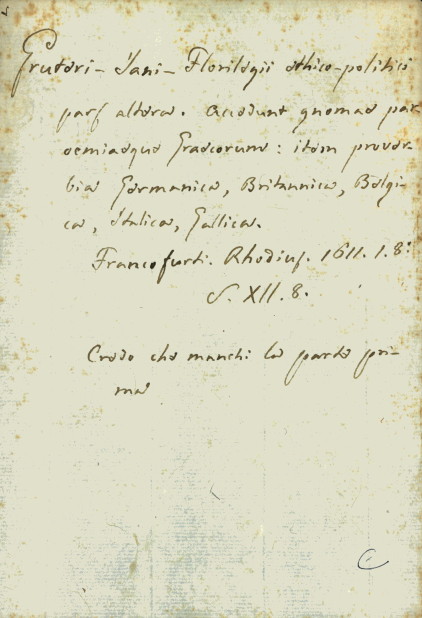 Gruteri - Jani - Florilegii ethico-politici
pars altera. Accedunt gnomae par
oemiaeque Graecorum: item prover
bia Germanica, Britannica, Belgi-
ca, Italica, Gallica.
Francofurti. Rhodius. 1611. 1. 8:
S. XII. 8.
Credo che manchi la parte pri-
ma
C